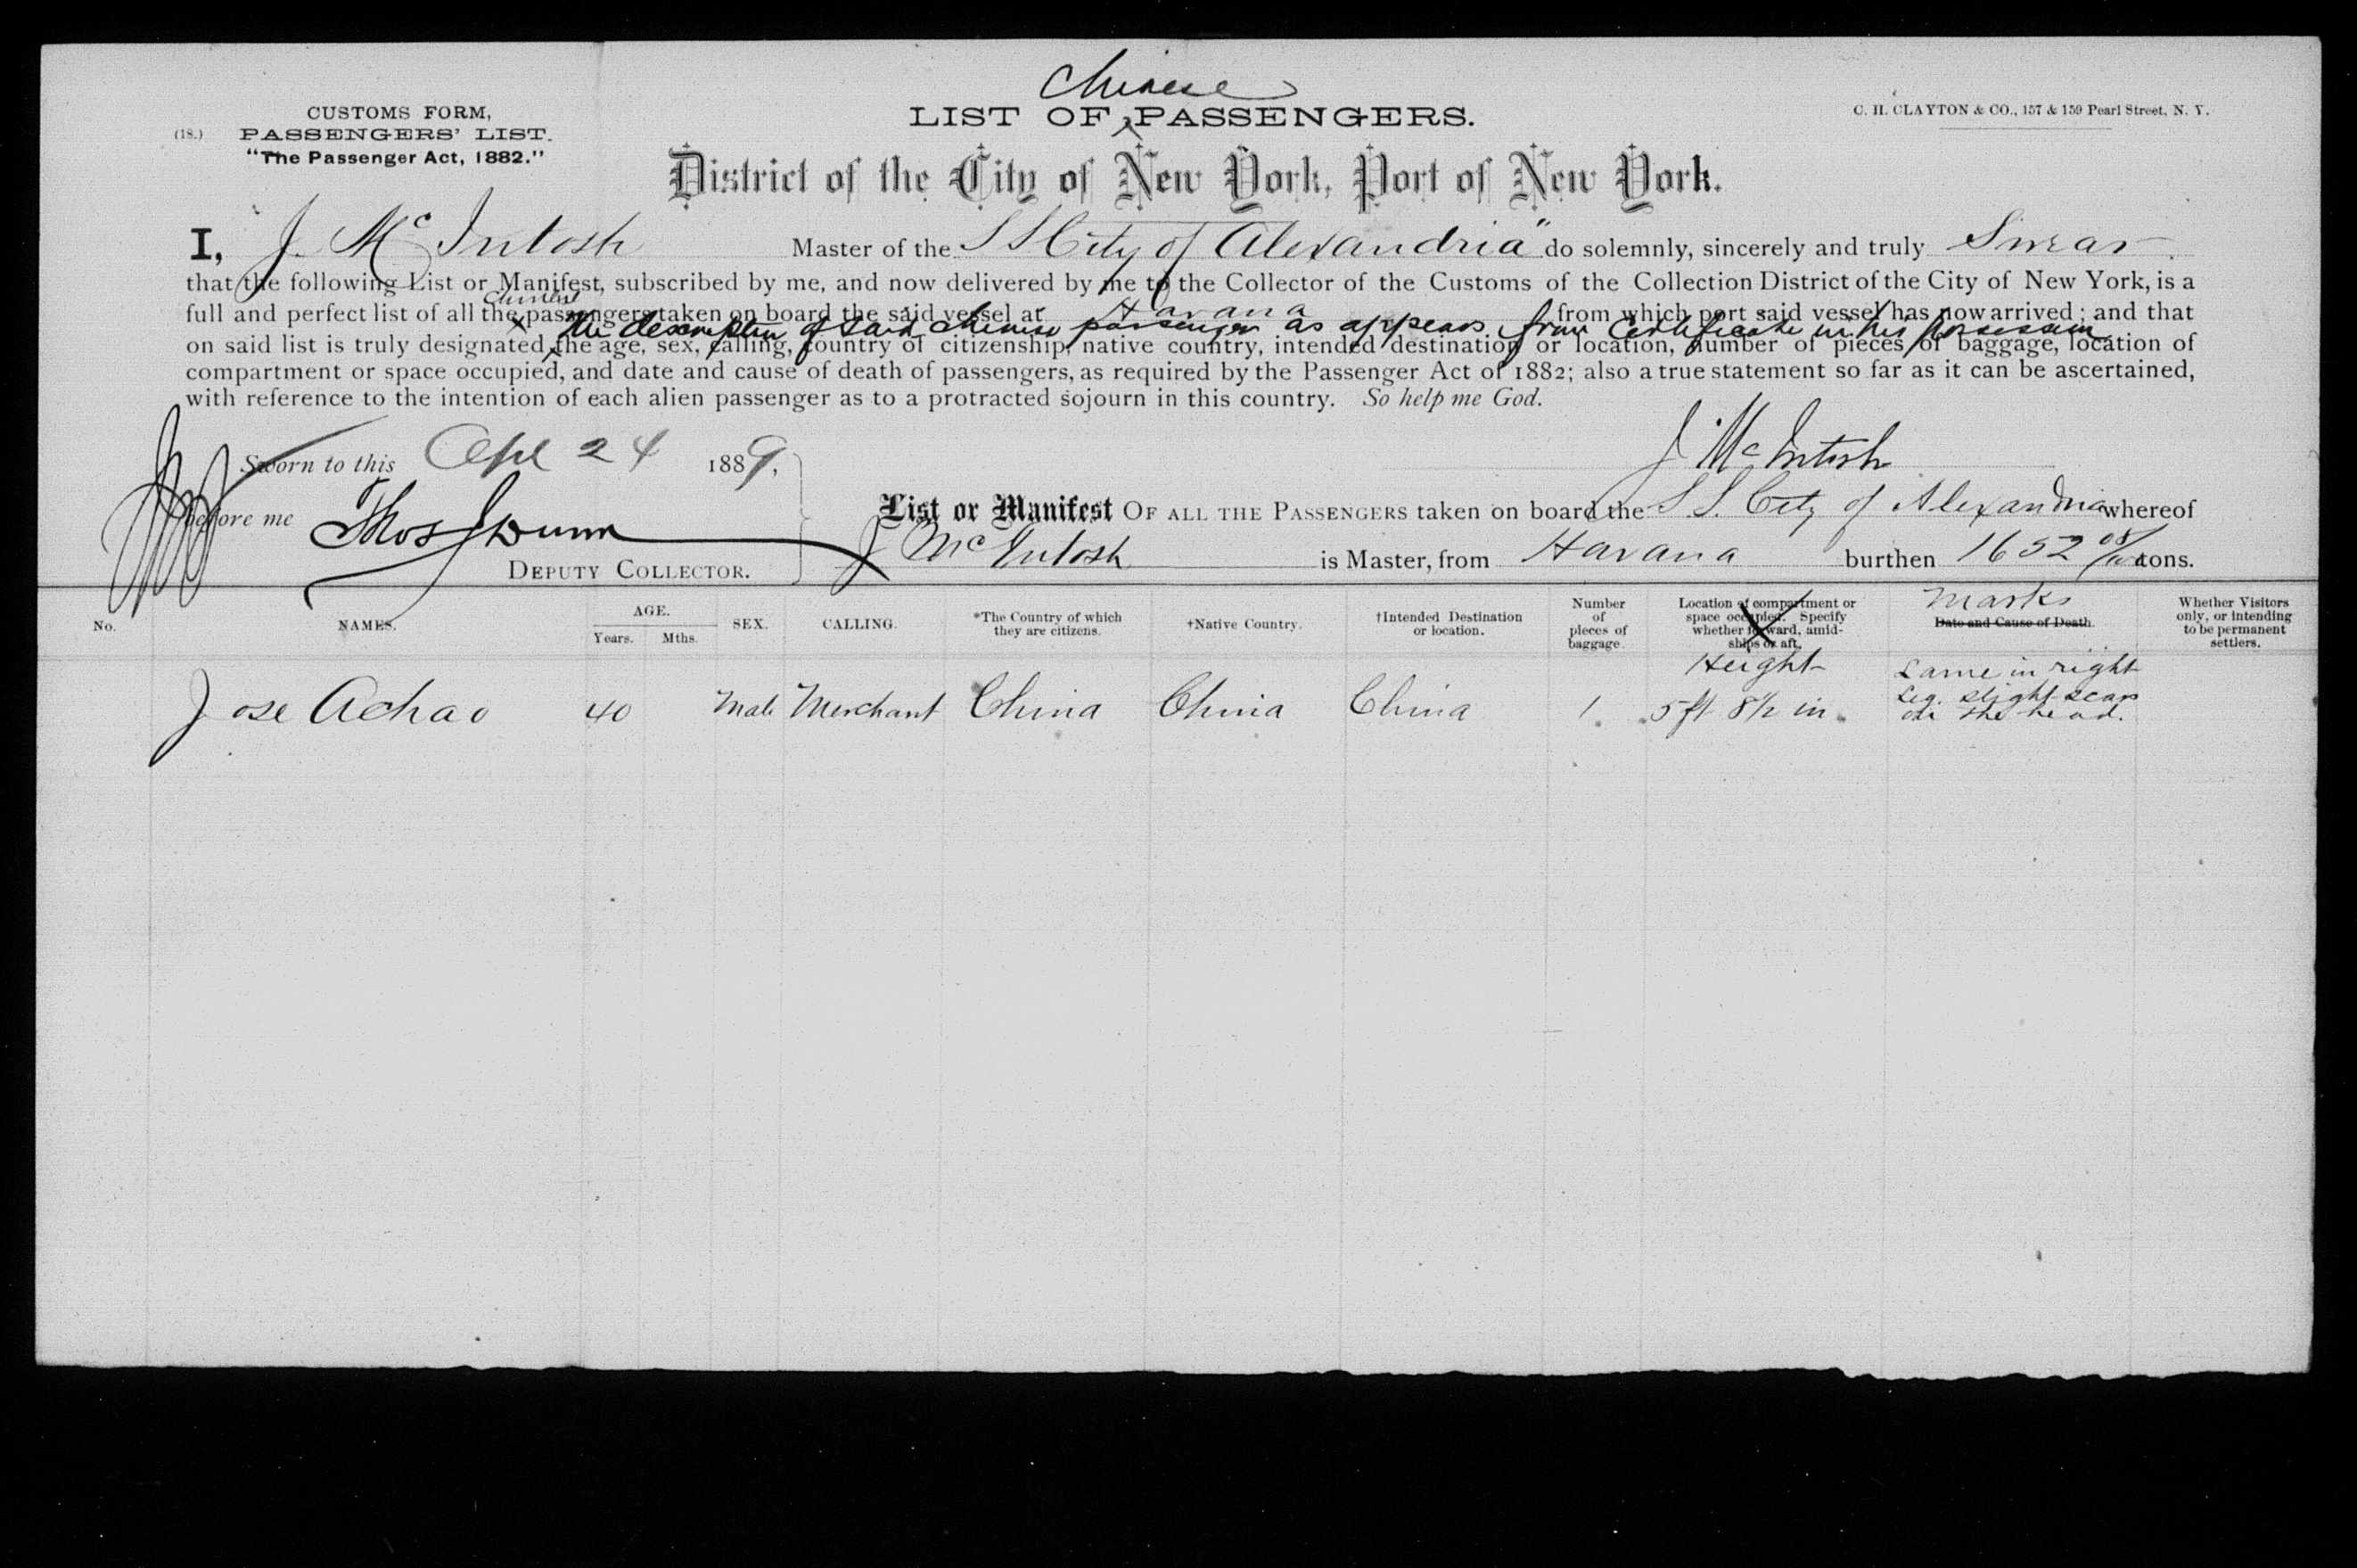 Chinese
CUSTOMS FORM,
(18.) PASSENGERS' LIST.
"The Passenger Act, 1882."
LIST OF ^ PASSENGERS.
C. H. CLAYTON & CO., 157 & 159 Pearl Street, N. Y.
District of the City of New York, Port of New York.
I, J. McIntosh Master of the SS City of Alexandria" do solemnly, sincerely and truly Swear
that the following List or Manifest, subscribed by me, and now delivered by me to the Collector of the Customs of the Collection District of the City of New York, is a
Chinese
full and perfect list of all the passengers taken on board the said vessel at Havana from which port said vessel has now arrived; and that
the description of said Chinese passenger as appears from Certificate in his possession
on said list is truly designated, the age, sex, calling, country of citizenship, native country, intended destination or location, number of pieces of baggage, location of
compartment or space occupied, and date and cause of death of passengers, as required by the Passenger Act of 1882; also a true statement so far as it can be ascertained,
with reference to the intention of each alien passenger as to a protracted sojourn in this country. So help me God.
Sworn to this Apl 24 1889,
J McIntosh
before me Thos J Dunn
DEPUTY COLLECTOR.
List or Manifest OF ALL THE PASSENGERS taken on board the S.S. City of Alexandria whereof
J McIntosh is Master, from Havana burthen 1652 tons.
No. NAMES. AGE. Years. Mths. SEX. CALLING. *The Country of which they are citizens. †Native Country. †Intended Destination or location. Number of pieces of baggage. Location of compartment or space occupied. Specify whether forward, amidships or aft. Marks Date and Cause of Death. Whether Visitors only, or intending to be permanent settlers.
Height Lame in right
Jose Achao 40 Male Merchant China China China 1 5 ft 8½ in. Leg. slight scar
on the head.